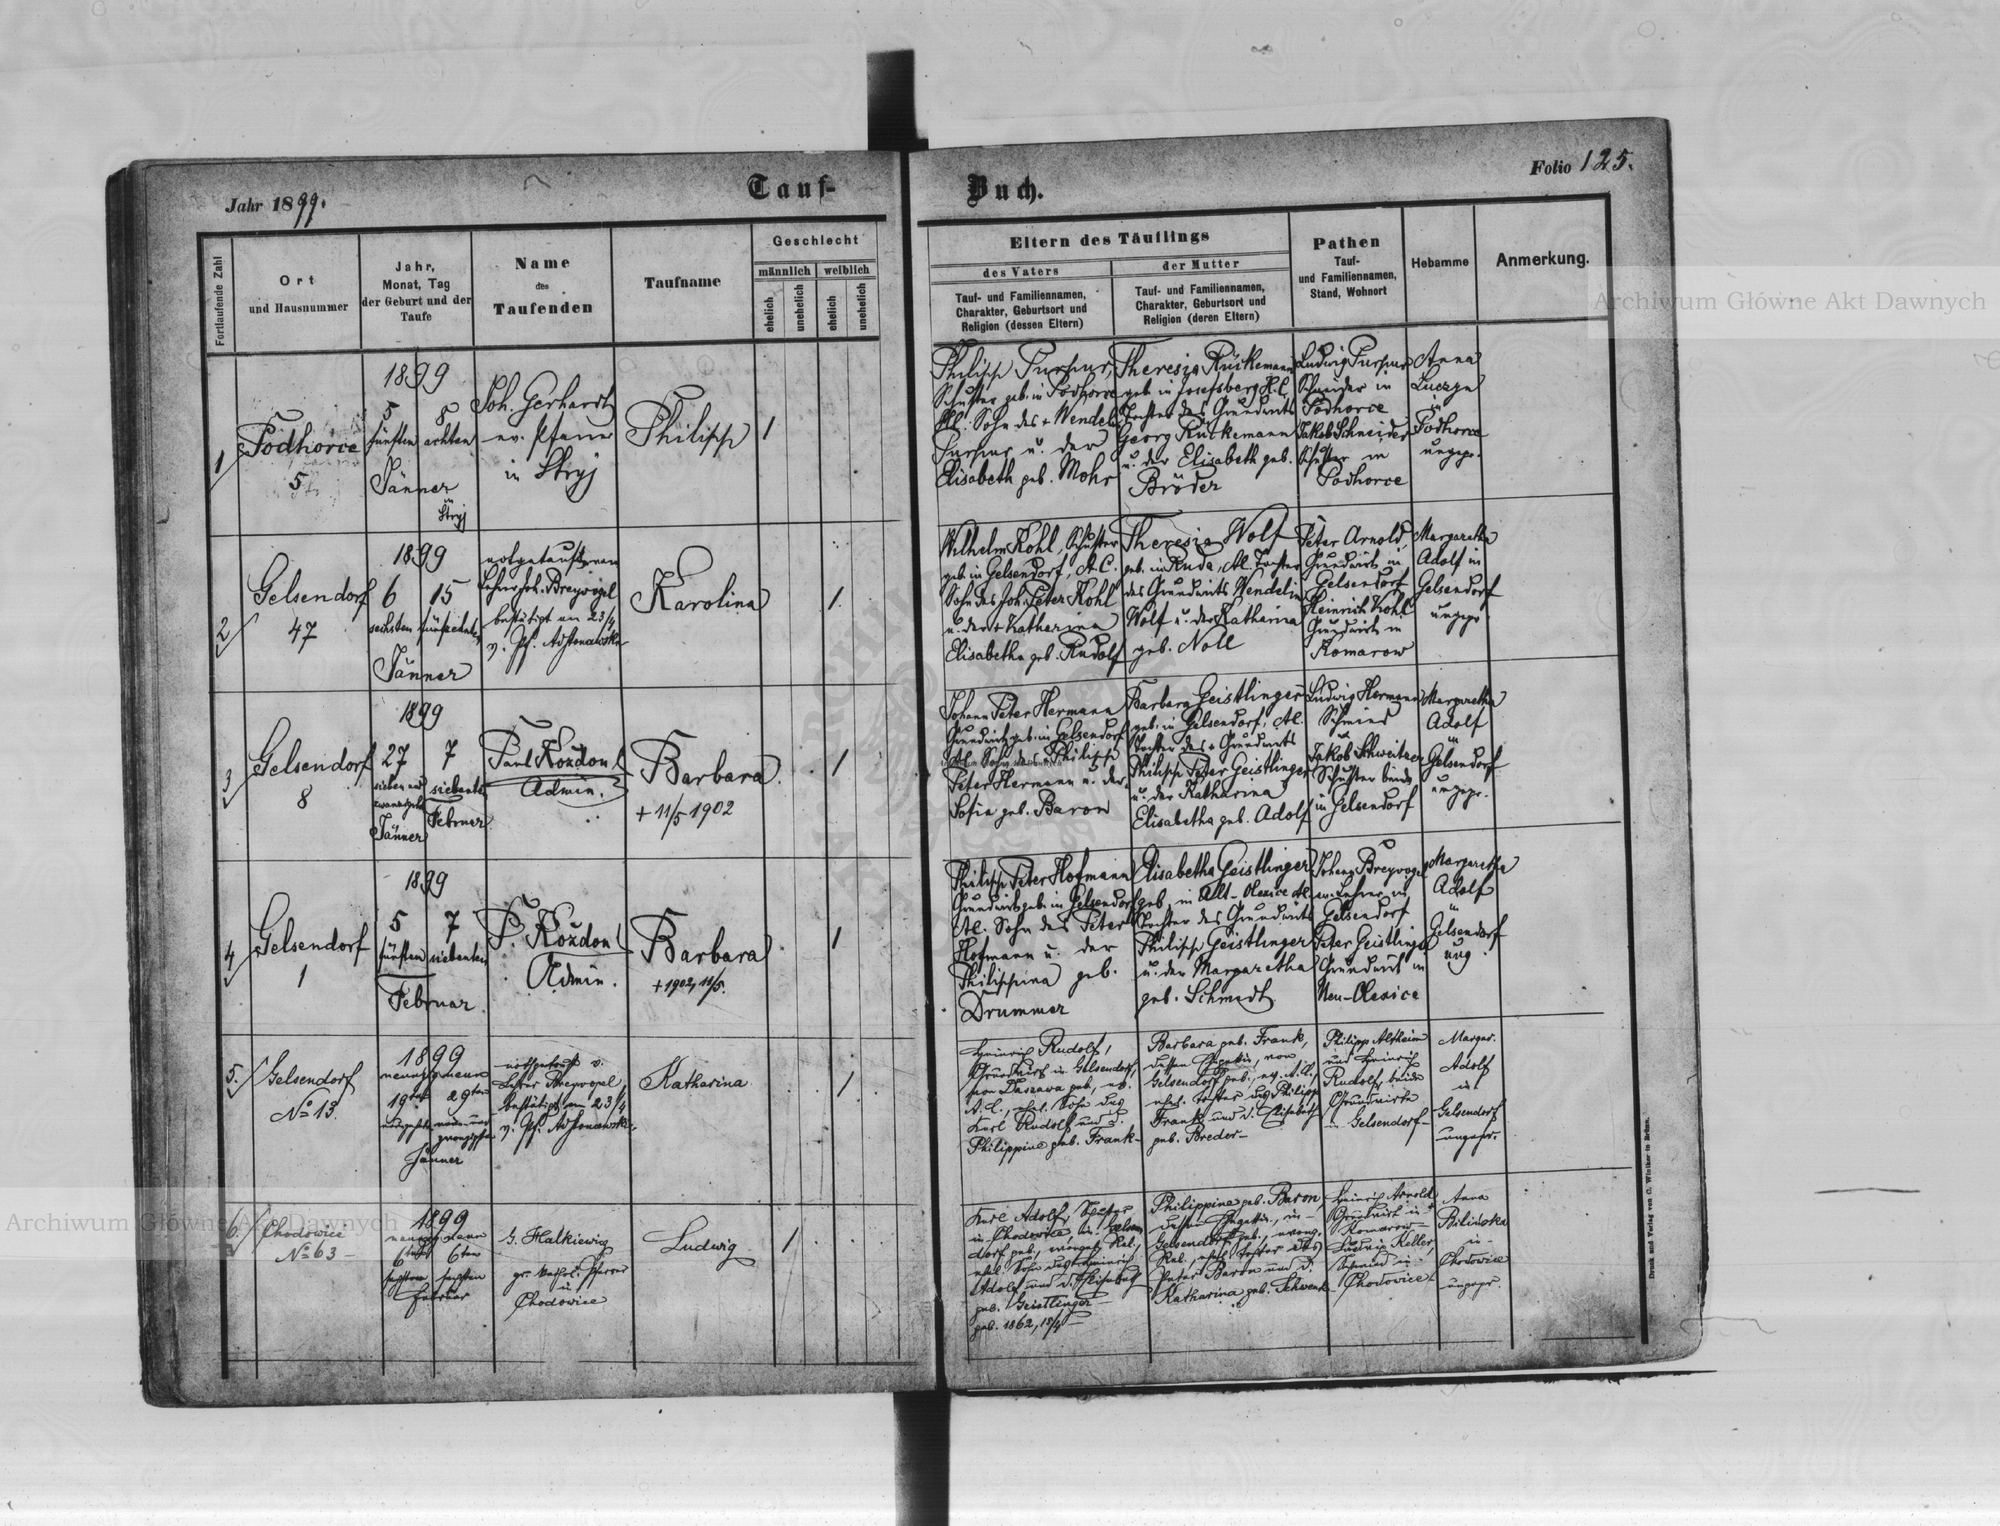 Jahr 1899.
Tauf-
Buch.
Folio 125.
Fortlaufende Zahl
Ort
und Hausnummer
Jahr,
Monat, Tag
der Geburt und der
Taufe
Name
des
Taufenden
Taufname
Geschlecht
männlich
weiblich
ehelich
unehelich
ehelich
unehelich
Eltern des Täuflings
des Vaters
Tauf- und Familiennamen,
Charakter, Geburtsort und
Religion (dessen Eltern)
der Mutter
Tauf- und Familiennamen,
Charakter, Geburtsort und
Religion (deren Eltern)
Pathen
Tauf-
und Familiennamen,
Stand, Wohnort
Hebamme
Anmerkung.
1
Podhorce
5
1899
5 8
fünften achten
Jänner
in
Stryj
Joh. Gerhardt
ev. Pfarrer
in Stryj
Philipp
1
Schuster geb. in Podhorce
Sohn des + Wendel
u. der
Elisabeth geb. Mohr
Theresia Rückemann
geb. in Josefsberg H.C.
Tochter des Grundwirts
Georg Rückemann
u. der Elisabeth geb.
Bröder
Ludwig
Schneider in
Podhorce
Jakob Schneider
Schuster in
Podhorce
Anna
in
Podhorce
ungepr.
2
Gelsendorf
47
1899
6 15
sechsten fünfzehnten
Jänner
notgetauft von
Lehrer Joh. Breyvogel
bestätigt am 23/4
v. Pf.
Karolina
1.
Wilhelm Kohl, Schuster
geb. in Gelsendorf, A.C.
Sohn des Joh. Peter Kohl
u. der + Katharina
Elisabetha geb. Rudolf
Theresia Wolf
geb. in Ruda, Tochter
des Grundwirts Wendelin
Wolf u. der Katharina
geb. Noll
Peter Arnold,
Grundwirt in
Gelsendorf
Heinrich Kohl
Grundwirt in
Komarow
Margaretha
Adolf in
Gelsendorf
ungepr.
3
Gelsendorf
8
1899
27 7
sieben und siebenten
zwanzigsten
Jänner Februar
Paul Kozdon
Admin.
Barbara
+ 11/5 1902
1
Johann Peter Hermann
Grundwirt geb. in Gelsendorf
Sohn des Philipp
Peter Hermann u. der
Sofia geb. Baron
Barbara Geistlinger
geb. in Gelsendorf,
Tochter des + Grundwirts
Philipp Peter Geistlinger
u. der Katharina
Elisabetha geb. Adolf
Ludwig Hermann
Schmied
u.
Jakob Schweitzer
Schuster beide
in Gelsendorf
Margaretha
Adolf
in
Gelsendorf
ungepr.
4
Gelsendorf
1
1899
5 7
fünften siebenten
Februar
P. Kozdon
Admin.
Barbara
+ 1902, 11/5.
1
Philipp Peter Hofmann
Grundwirt geb. in Gelsendorf
Sohn des Peter
Hofmann u. der
Philippina geb.
Drummer
Elisabetha Geistlinger
geb. in Alt-Olexice
Tochter des Grundwirts
Philipp Geistlinger
u. der Margaretha
geb. Schmidt
Johann Breyvogel
ev. Lehrer in
Gelsendorf
Peter Geistlinger
Grundwirt in
Neu-Olexice
Margaretha
Adolf
in
Gelsendorf
ung.
5.
Gelsendorf
No 13.
1899
19ten 29ten
Jänner
nothgetauft v.
Lehrer Breyvogel
bestätigt am 23/4
v. Pf.
Katharina
1
Heinrich Rudolf,
Grundwirt in Gelsendorf,
A.C., ehel. Sohn des
Karl Rudolf und d.
Philippine geb. Frank-
Barbara geb. Frank,
dessen Ehegattin, von
Gelsendorf geb., ev. A.C.,
ehel. Tochter des Philipp
Frank und d. Elisabeth
geb. Breder-
Philipp Altheim
und Heinrich
Rudolf, beide
Grundwirte
in Gelsendorf-
Margar.
Adolf
in
Gelsendorf
ungepr.
6.
Chodowice
No 63 -
1899
6ten 6ten
sechsten sechsten
Februar
G. Halkiewicz
gr. kathol. Pfarrer
in
Chodowice
Ludwig
1
Karl Adolf,
in Chodowice, in Gelsen-
dorf geb., evang. Rel.,
ehel. Sohn des Heinrich
Adolf und d. Elisabeth
geb. Geistlinger-
geb. 1862, 18/4 -
Philippine geb. Baron,
dessen Ehegattin, in
Gelsendorf geb., evang.
Rel., ehel. Tochter des
Peter Baron und d.
Katharina geb. Schwenk-
Heinrich Arnold
Grundwirt in
Komarow-
Ludwig Keller,
Schmied in
Chodowice-
Anna
Bilińska
in
Chodowice
ungepr.
Druck und Verlag von C. Winiker in Brünn.
Archiwum Główne Akt Dawnych
Archiwum Główne Akt Dawnych